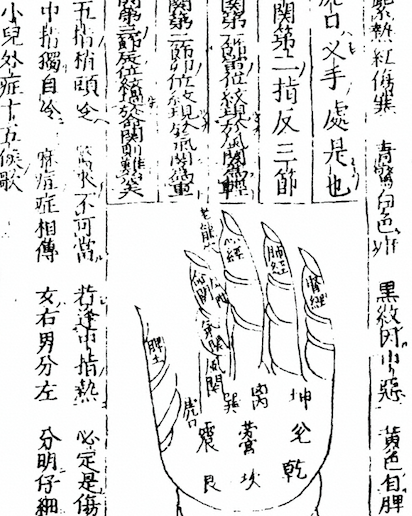 紫熱紅傷寒　青驚白色疳　黑紋时中惡　黃色自脾
口乂手處是也
關第二指反三節
關第一節寅位紋現於風關為輕
關第二節卯位紋現於氣關為重
關第三節辰位紋於命關難矣
五指梢頭冷　驚來不可當　若逢中指熱　必定是傷
中指獨自冷　麻痘症相傳　女右男分左　分明仔細
小兒外症十五候歌
腎經
肺經
心經
氣關
風關
脾土
虎口
坤
兌
乾
离
坎
巽
震
艮